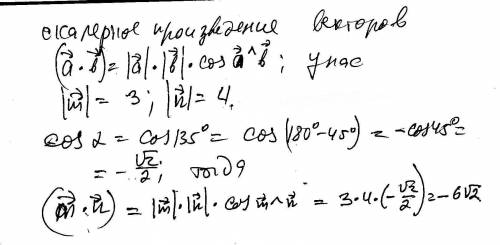 скалярное произведение векторов
(a⃗ · b⃗) = |a⃗| · |b⃗| · cos a⃗ ^ b⃗ ; у нас
|m⃗| = 3 ; |n⃗| = 4.
cos α = cos 135° = cos (180° - 45°) = - cos 45° =
= - √2/2 ; тогда
(m⃗ · n⃗) = |m⃗| · |n⃗| · cos m⃗ ^ n⃗ = 3 · 4 · (- √2/2) = - 6√2